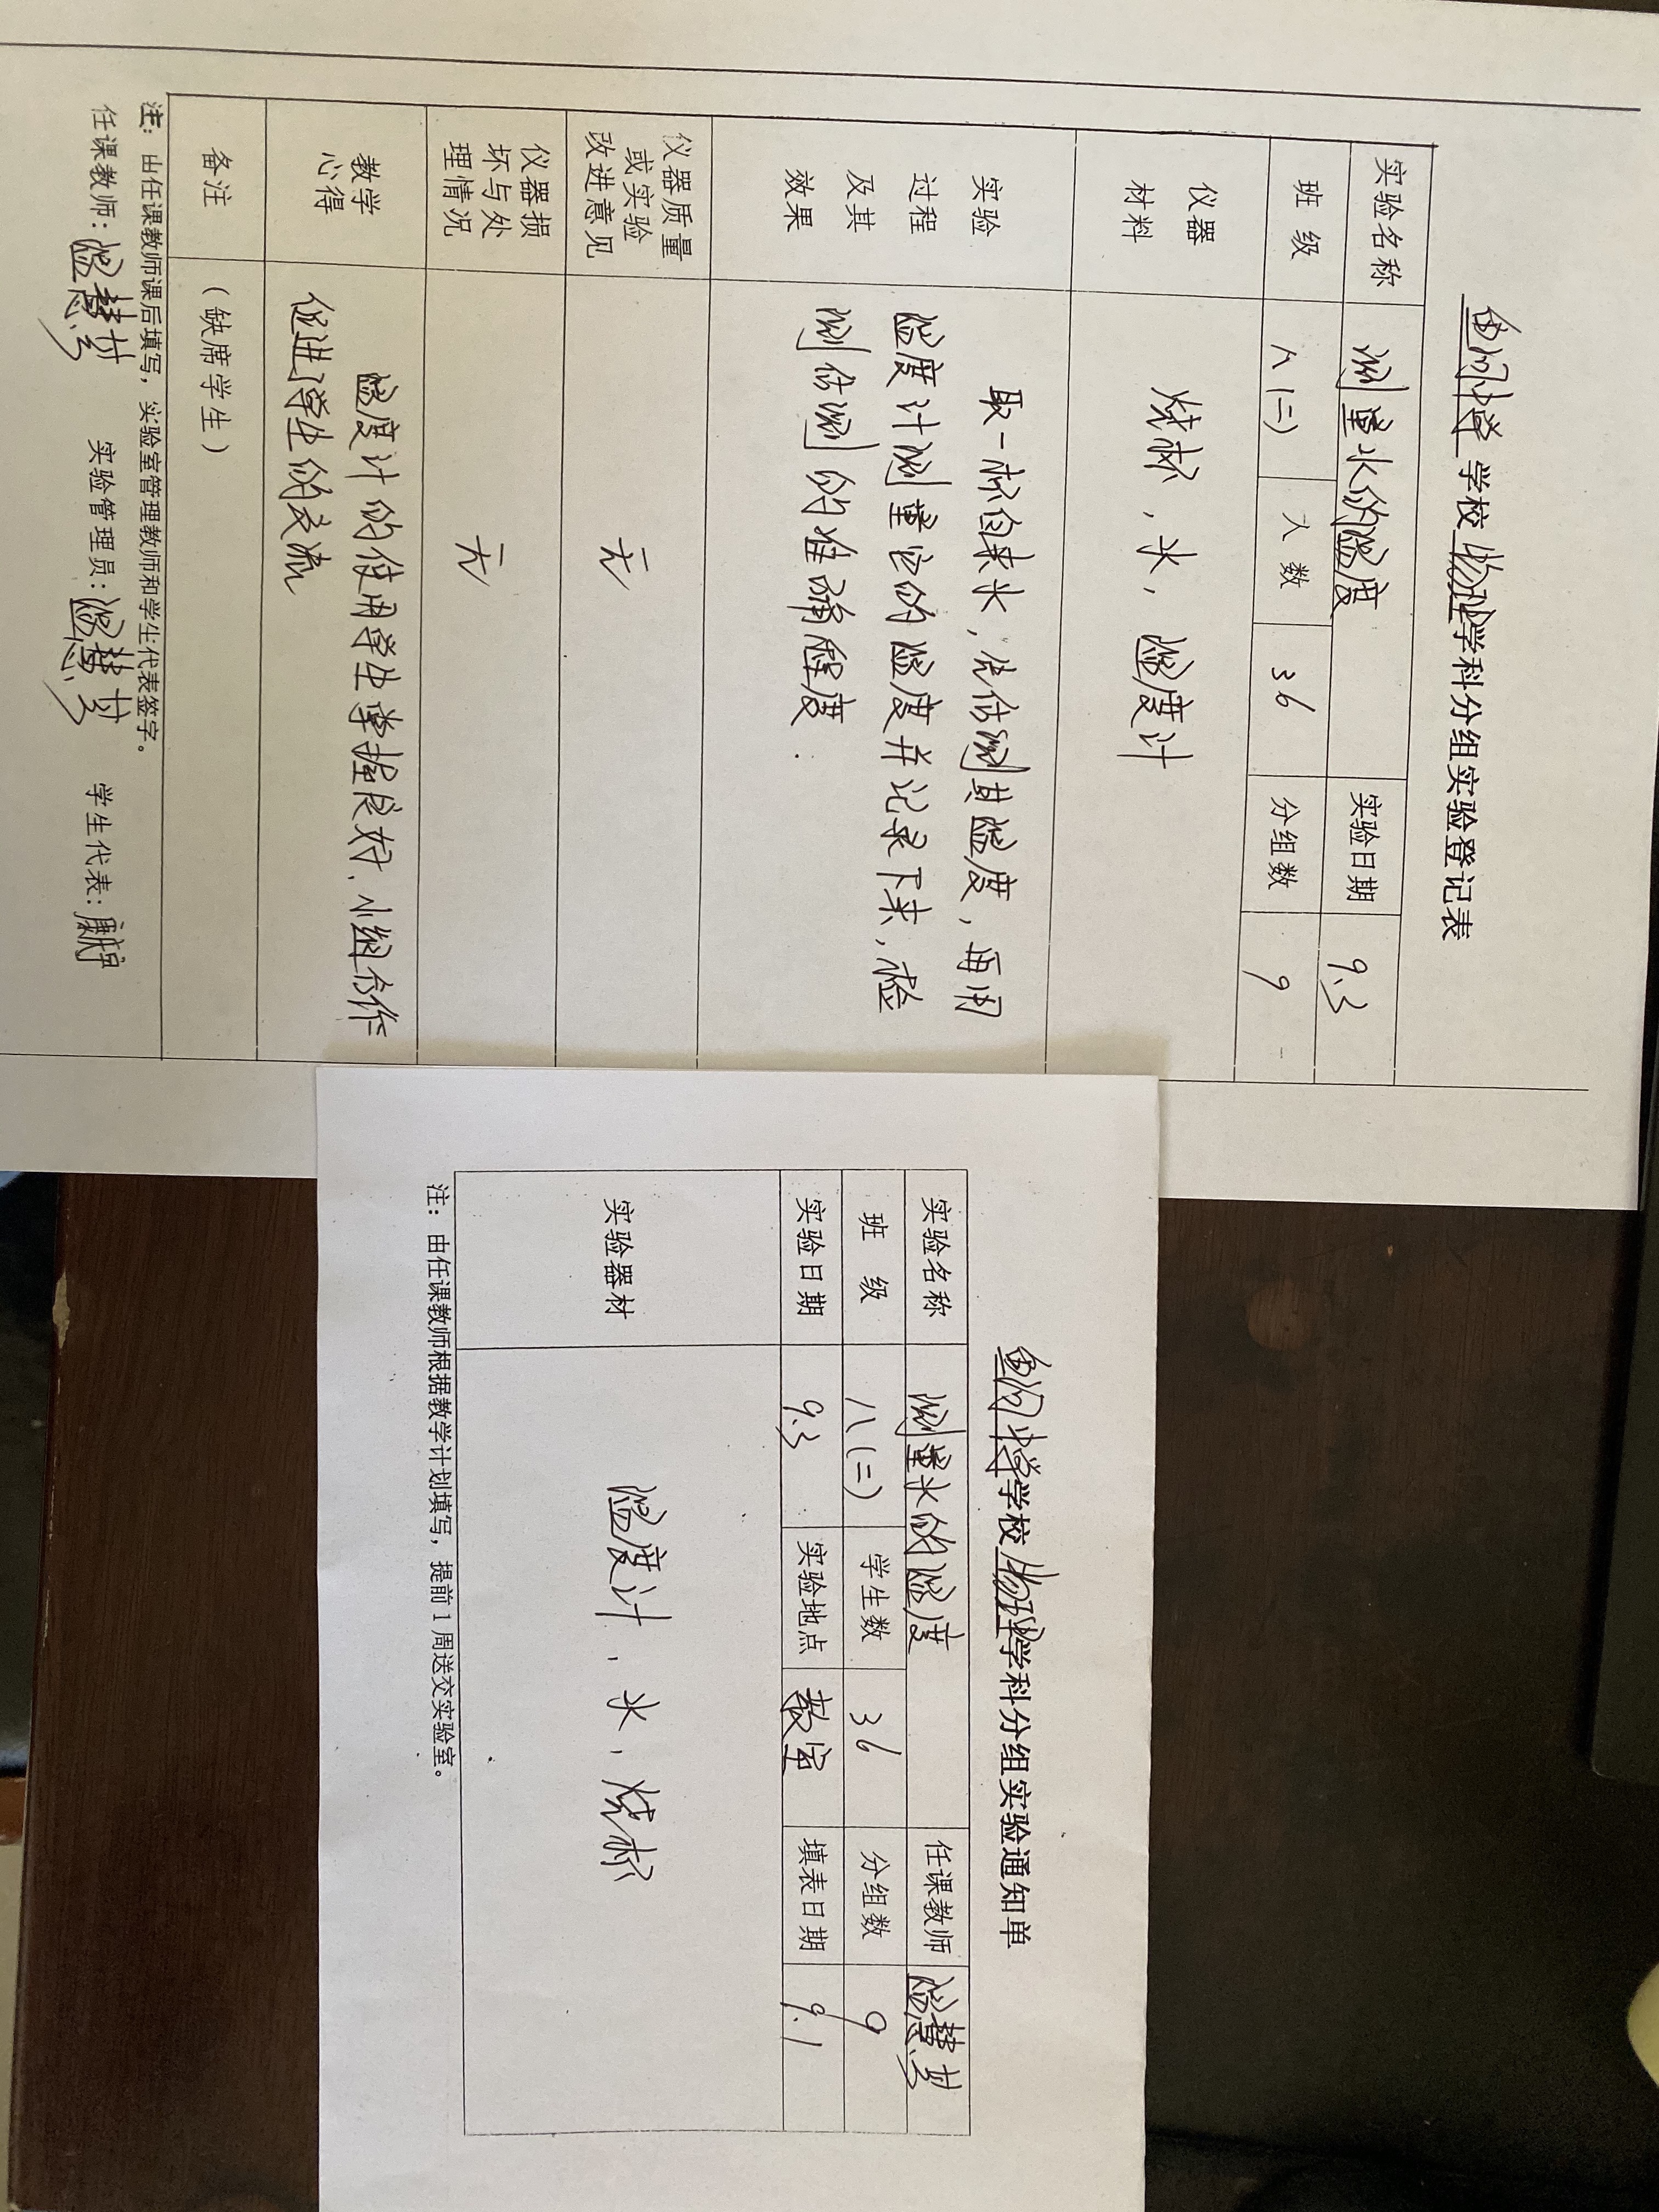 鱼河中学 学校 物理 学科分组实验登记表
实验名称 测量水的温度 实验日期 9.3
班 级 八(二) 人 数 36 分组数 9
仪器
材料
烧杯，水，温度计
实验
过程
及其
效果
取一杯自来水，先估测其温度，再用
温度计测量它的温度并记录下来，检
测估测的准确程度.
仪器质量
或实验
改进意见
无
仪器损
坏与处
理情况
无
教学
心得
温度计的使用学生掌握良好，小组合作
促进学生的交流
备注 （缺席学生）
注：由任课教师课后填写，实验室管理教师和学生代表签字。
任课教师： 实验管理员： 学生代表：
鱼河中学 学校 物理 学科分组实验通知单
实验名称 测量水的温度 任课教师
班 级 八(二) 学生数 36 分组数 9
实验日期 9.3 实验地点 教室 填表日期 9.1
实验器材
温度计，水，烧杯
注：由任课教师根据教学计划填写，提前1周送交实验室。